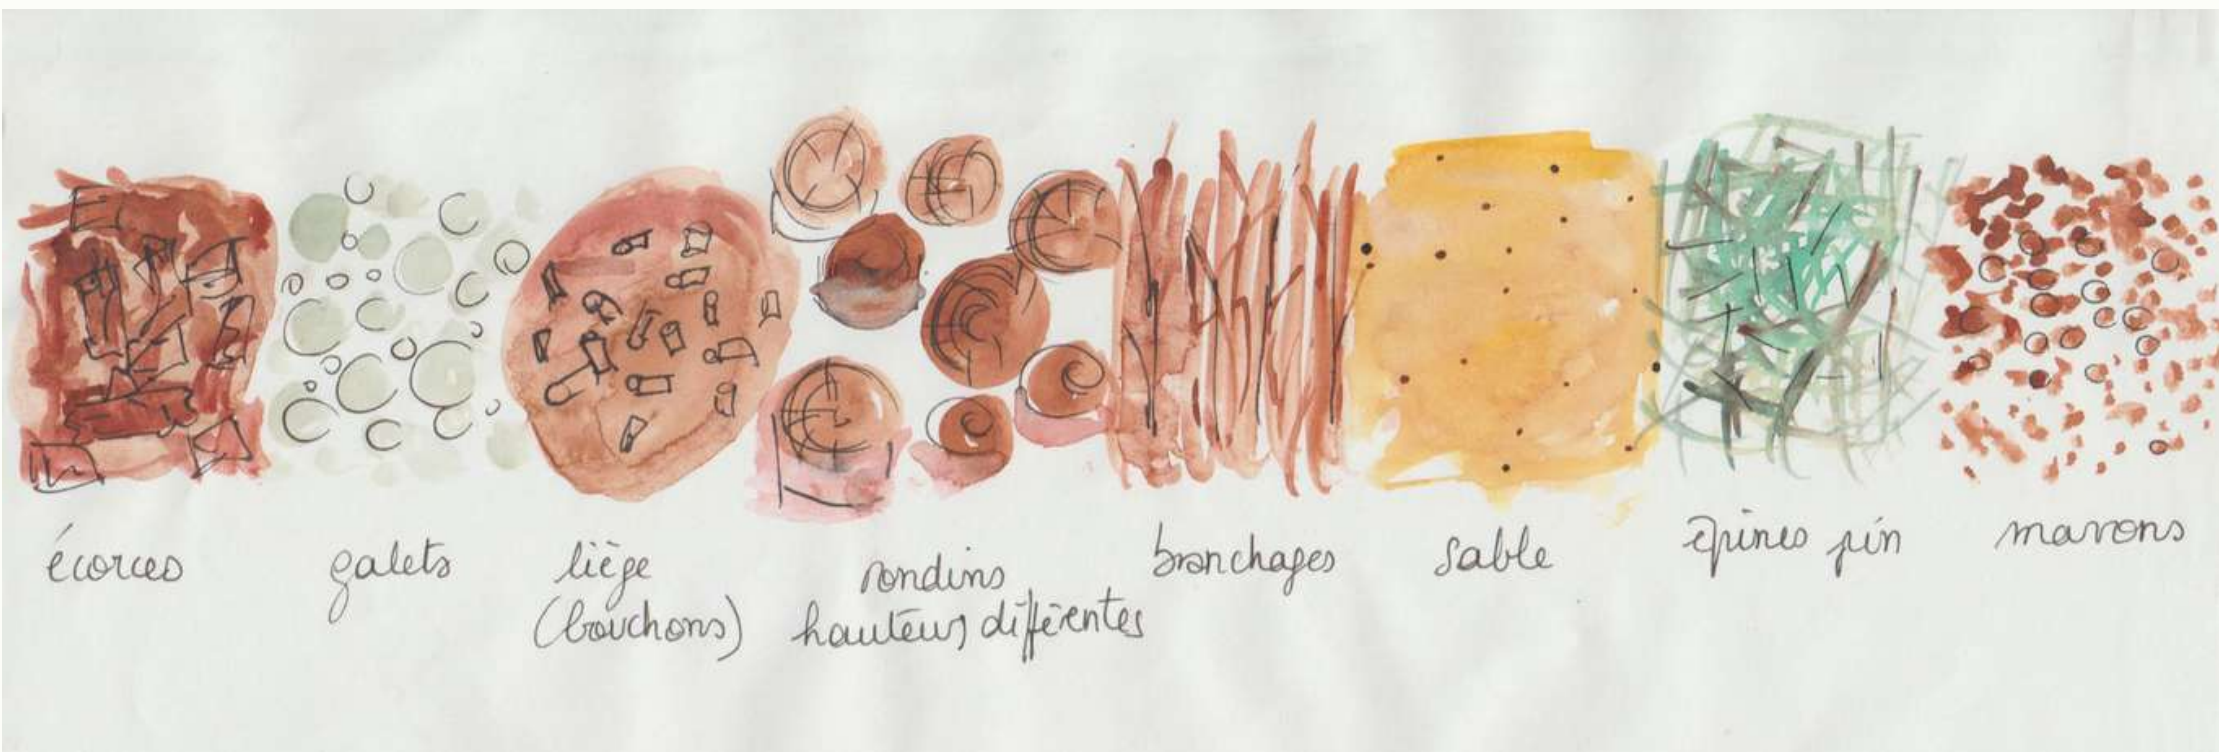 écorces
galets
liège
(bouchons)
rondins
hauteurs différentes
branchages
sable
épines pin
marrons